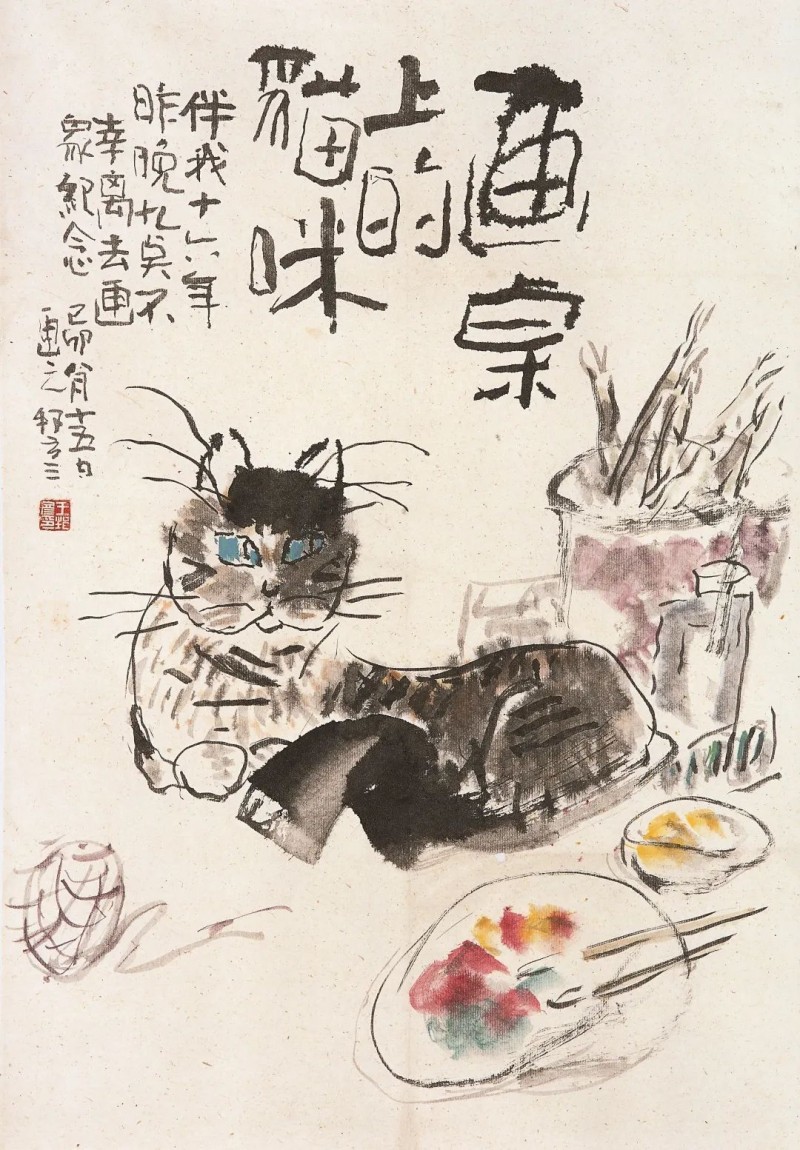 画桌
上的
貓咪
伴我十六年
昨晚九点不
幸离去画
象紀念
己卯月十五日
画之